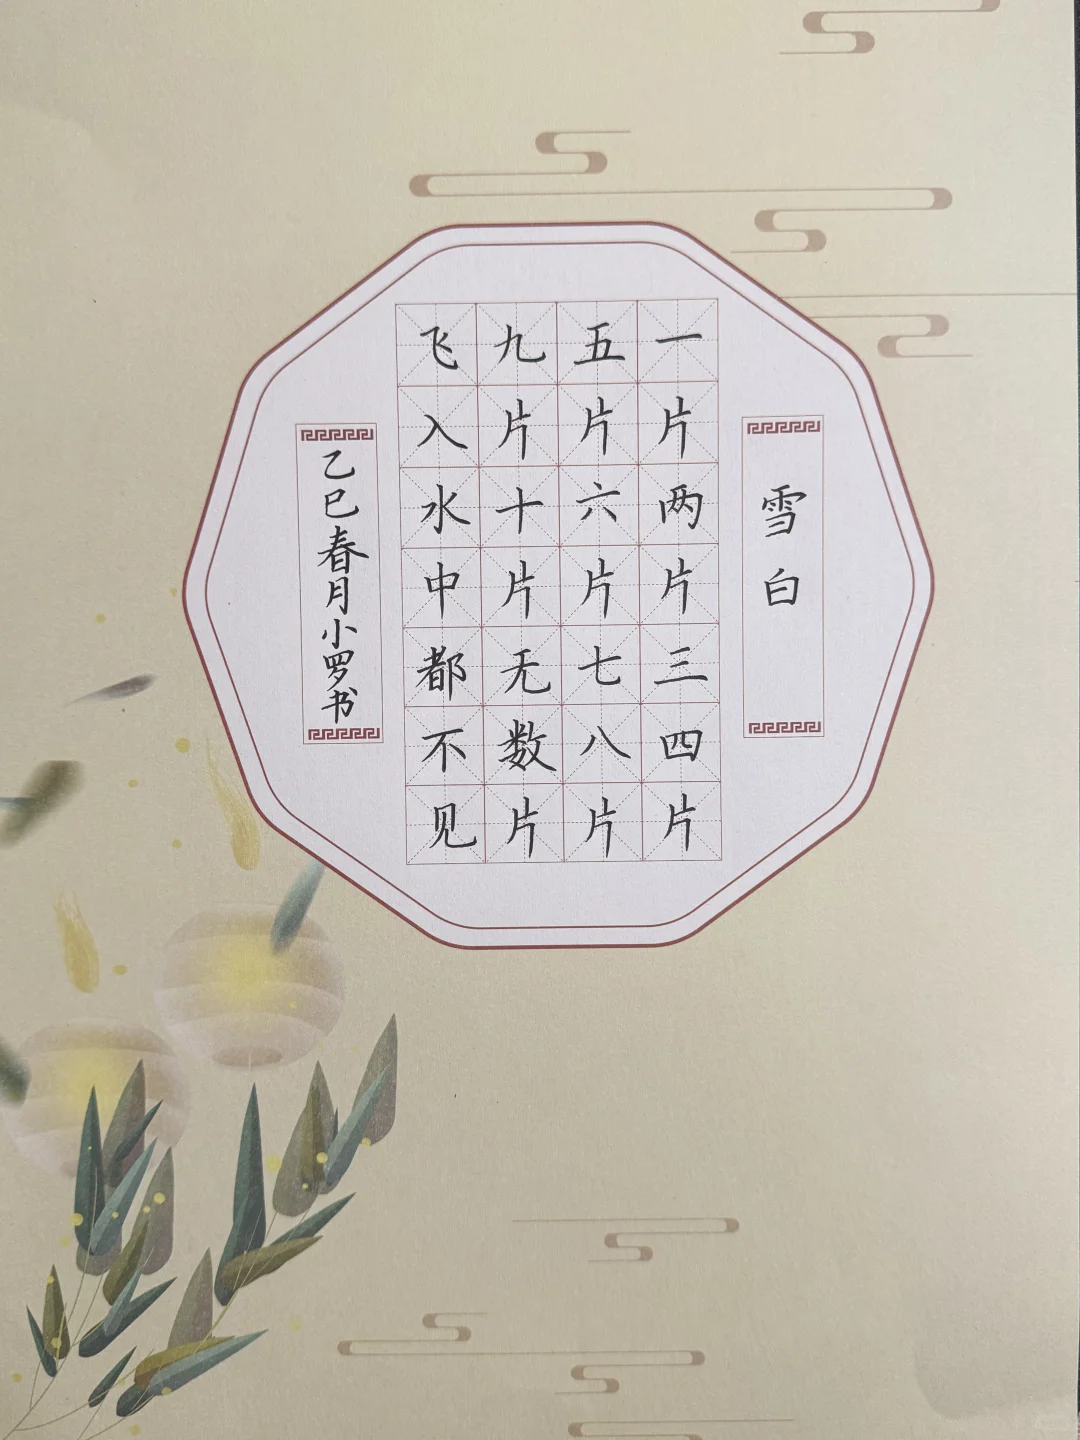 雪白
一片两片三四片
五片六片七八片
九片十片无数片
飞入水中都不见
乙巳春月小罗书